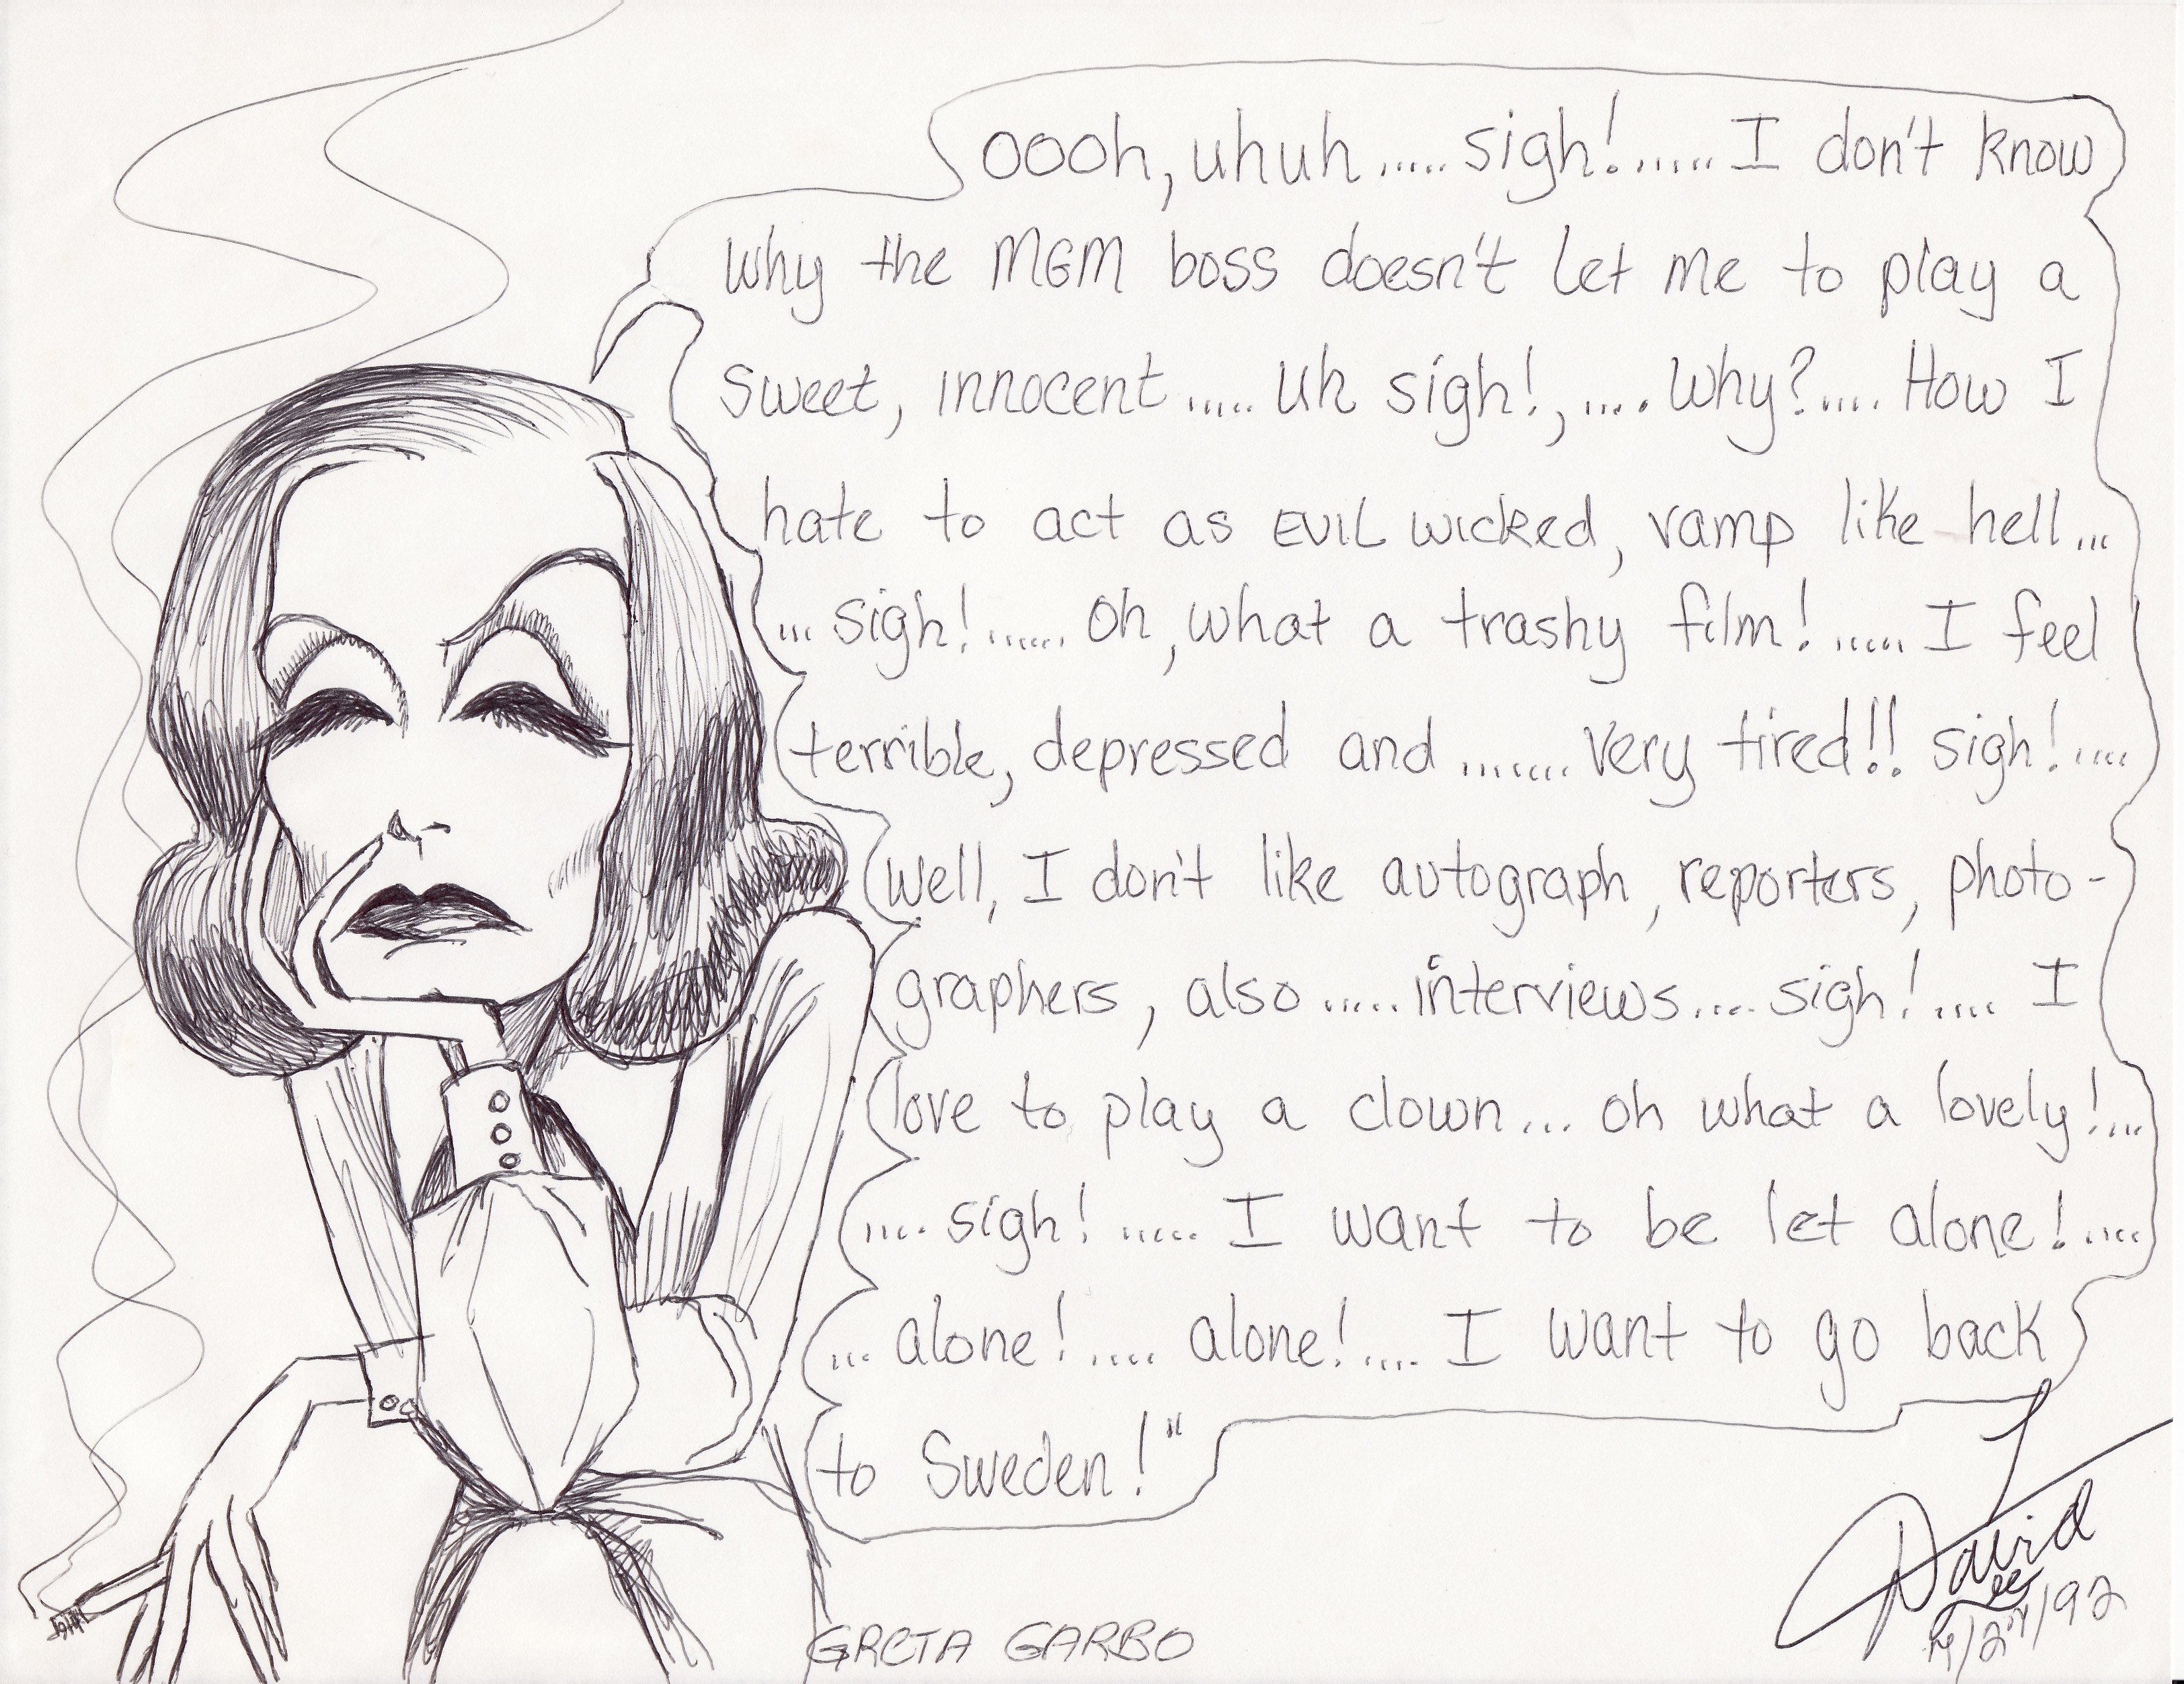 Oooh, uhuh ..... sigh! ...... I don't know
why the MGM boss doesn't let me to play a
sweet, innocent ..... uh sigh!, .... why? .... How I
hate to act as EVIL wicked, vamp like hell ...
... sigh! ...... oh, what a trashy film! ..... I feel
terrible, depressed and ....... very tired!! sigh! ....
Well, I don't like autograph, reporters, photo-
graphers, also ..... interviews .... sigh! .... I
love to play a clown ... oh what a lovely! ...
.... sigh! ..... I want to be let alone! ....
... alone! .... alone! .... I want to go back
to Sweden!"
David
Lee
/92
GRETA GARBO